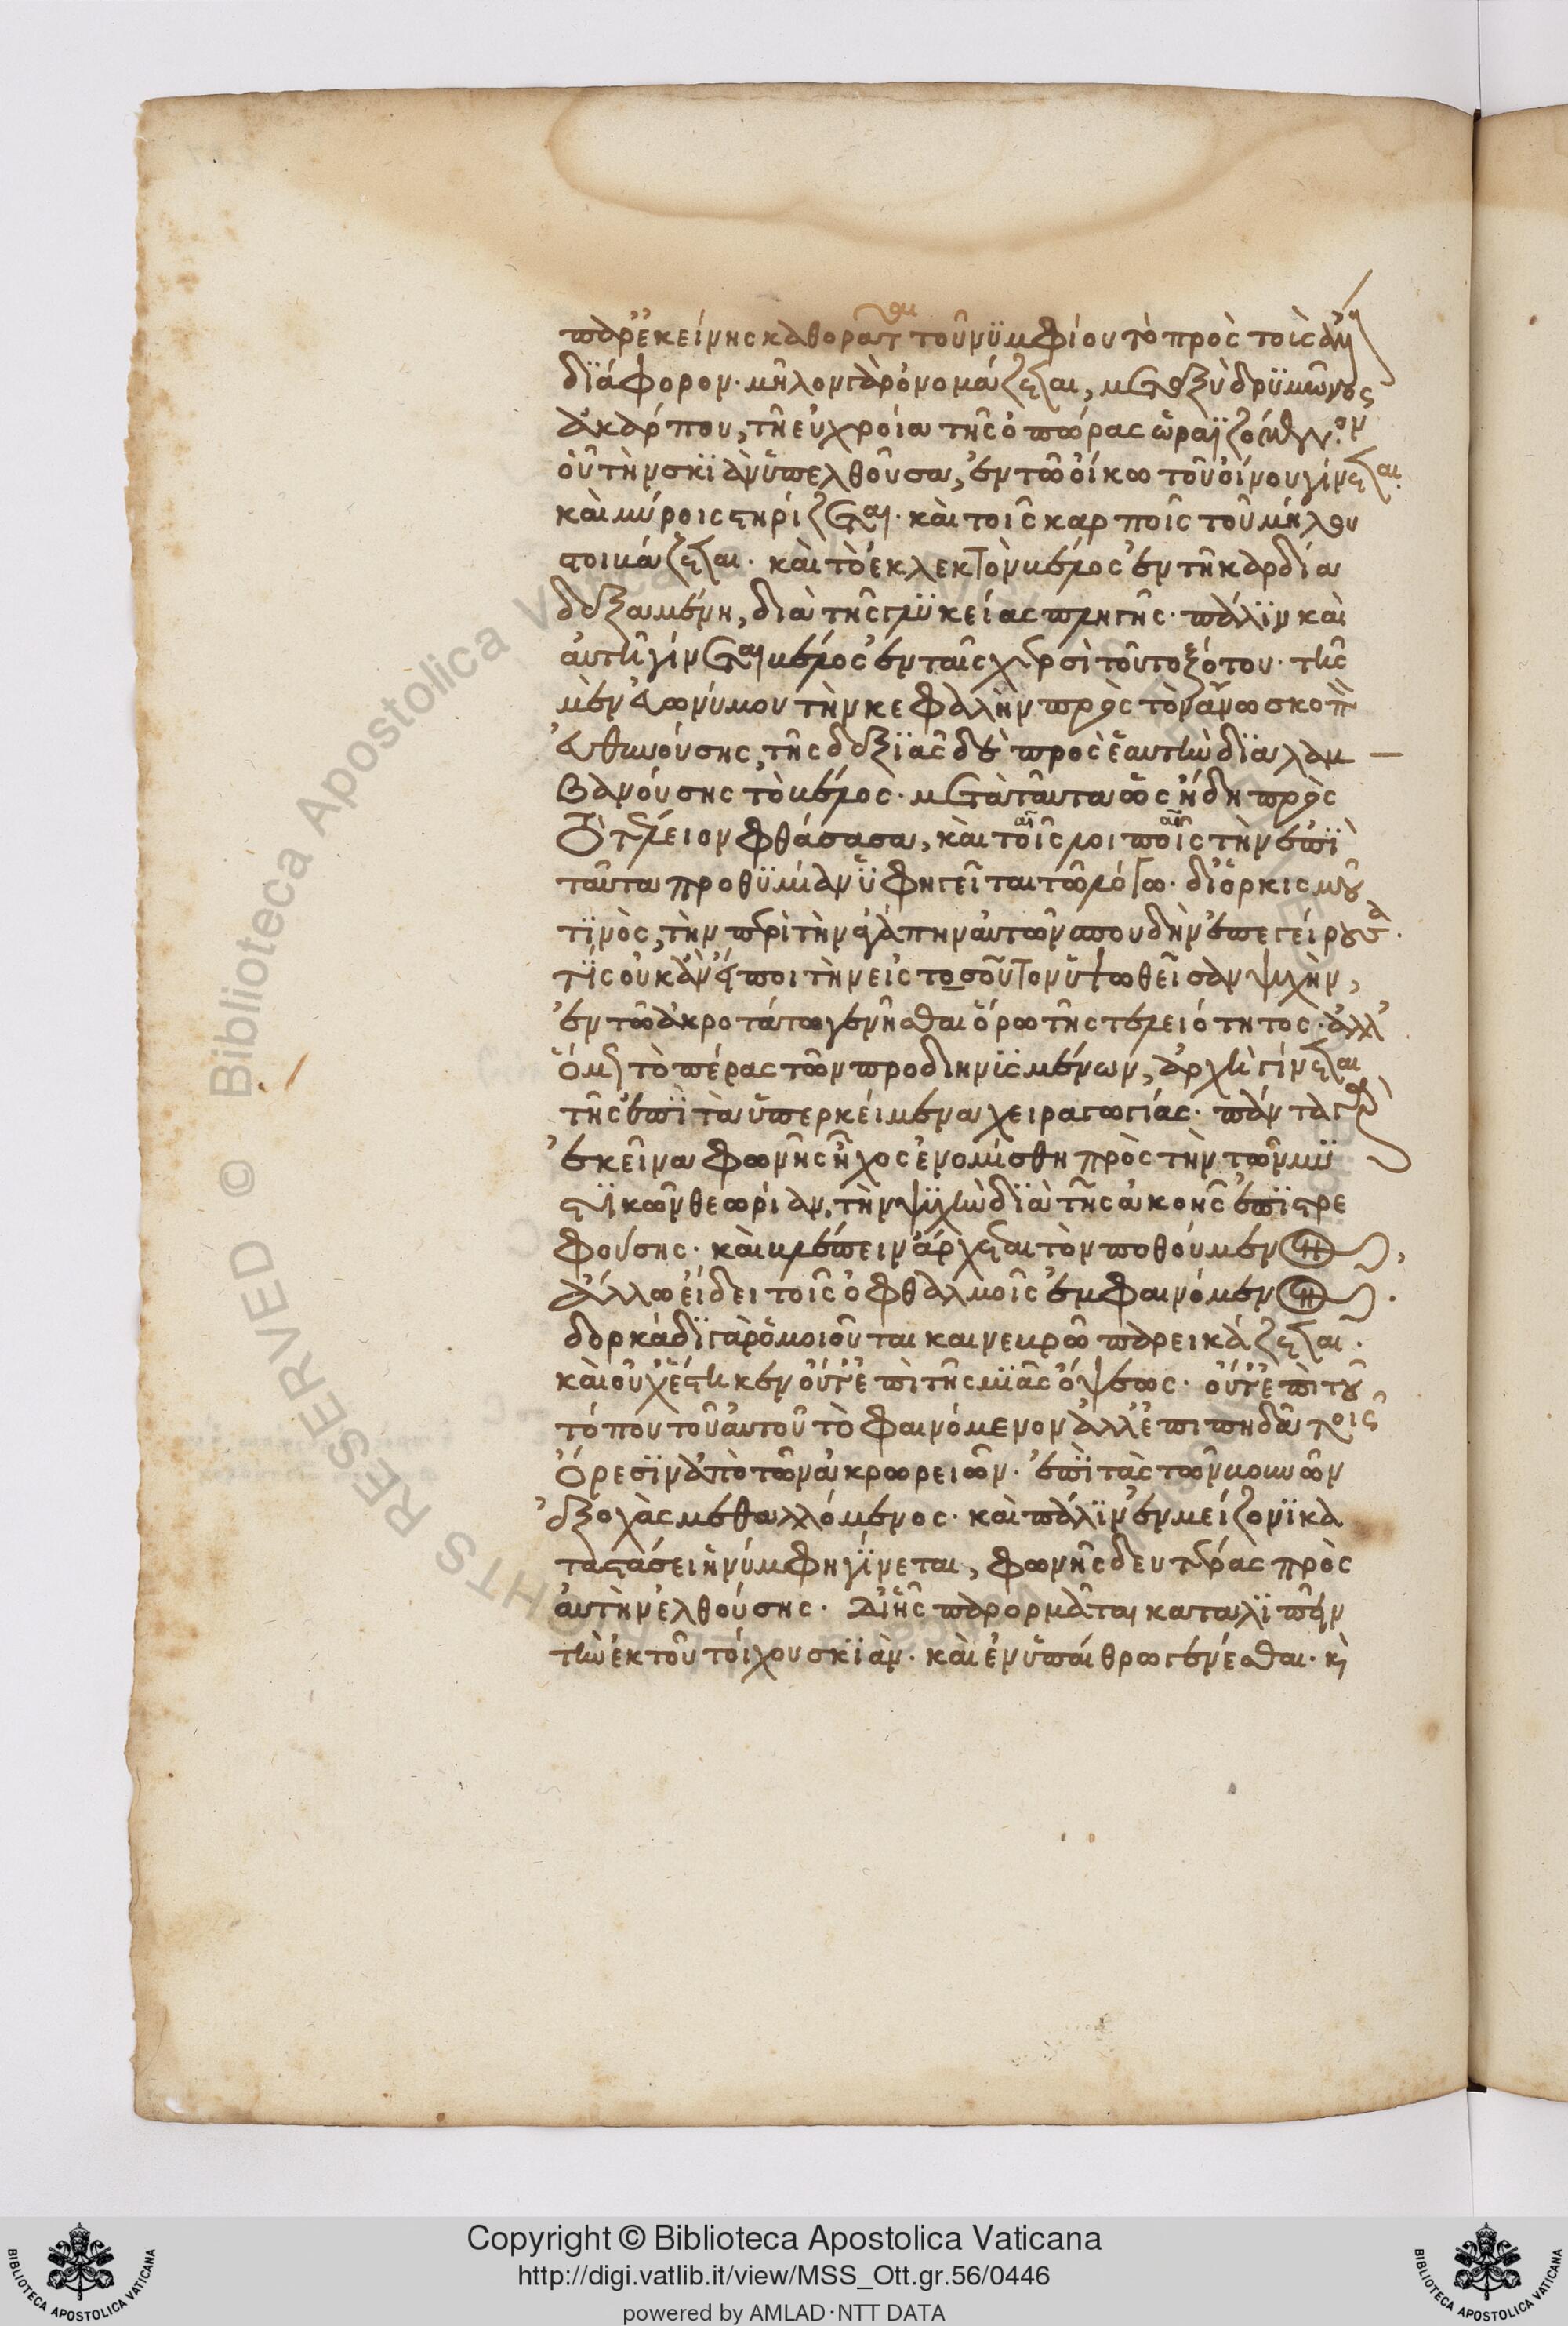 παρ' ἐκείνης καθορᾶται τοῦ νυμφίου τὸ πρὸς τοὺς ἄλλους
διάφορον· μῆλον γὰρ ὀνομάζεται, μεταξὺ δρυμῶνος
ἀκάρπου, τῇ εὐχροία τῆς ὀπώρας ὡραϊζόμενον·
οὗ τὴν σκιὰν ὑπελθοῦσα, ἐν τῶ οἴκω τοῦ οἴνου γίνεται.
καὶ μύροις στηρίζεται· καὶ τοῖς καρποῖς τοῦ μήλου
στοιβάζεται· καὶ τὸ ἐκλεκτὸν βέλος ἐν τῇ καρδία
δεξαμένη, διὰ τῆς γλυκείας πληγῆς· πάλιν καὶ
αὐτὴ γίνεται βέλος ἐν ταῖς χερσὶ τοῦ τοξότου· τῆς
μὲν εὐωνύμου τὴν κεφαλὴν πρὸς τὸν ἄνω σκοπὸν
εὐθυνούσης, τῆς δεξιᾶς δὲ πρὸς ἑαυτὴν διαλαμ—
βανούσης τὸ βέλος· μετὰ ταῦτα ὡς ἤδη πρὸς
τὸ τέλειον φθάσασα, καὶ τοῖς λοιποῖς τὴν ἐπὶ
ταῦτα προθυμίαν ὑφηγεῖται τῶ λόγω· δι' ὁρκισμοῦ
τινὸς, τὴν περὶ τὴν ἀγάπην αὐτῶν σπουδὴν ἐπεγείρουσα·
τίς οὐκ ἂν εἴποι τὴν εἰς τοσοῦτον ὑψωθεῖσαν ψυχὴν,
ἐν τῶ ἀκροτάτω γενῆσθαι ὅρω τῆς τελειότητος· ἀλλ'
ὅμως τὸ πέρας τῶν προδιηνυσμένων, ἀρχὴ γίνεται
τῆς ἐπὶ τὰ ὑπερκείμενα χειραγωγίας· πάντα γὰρ
ἐκεῖνα φωνῆς ἦχος ἐνομίσθη πρὸς τὴν τῶν μυ
στικῶν θεωρίαν, τὴν ψυχὴν διὰ τῆς ἀκοῆς ἐπιστρε
φούσης· καὶ βλέπειν ἄρχεται τὸν ποθούμενον,
ἄλλω εἴδει τοῖς ὀφθαλμοῖς ἐμφαινόμενον.
δορκάδι γὰρ ὁμοιοῦται καὶ νεβρῶ παρεικάζεται·
καὶ οὐχ ἕστηκεν οὔτ' ἐπὶ τῆς μιᾶς ὄψεως· οὔτ' ἐπὶ τοῦ
τόπου τοῦ αὐτοῦ τὸ φαινόμενον ἀλλ' ἐπιπηδᾶ τοῖς
ὄρεσιν ἀπὸ τῶν ἀκρωρειῶν· ἐπὶ τὰς τῶν βουνῶν
ἐξοχὰς μεθαλλόμενος· καὶ πάλιν ἐν μείζονι κα
ταστάσει ἡ νύμφη γίνεται, φωνῆς δευτέρας πρὸς
αὐτὴν ἐλθούσης· δι' ἧς παρορμᾶται καταλιπεῖν
τὴν ἐκ τοῦ τοίχου σκιὰν· καὶ ἐν ὑπαίθρω γενέσθαι· κὶ
Copyright © Biblioteca Apostolica Vaticana
http://digi.vatlib.it/view/MSS_Ott.gr.56/0446
powered by AMLAD·NTT DATA